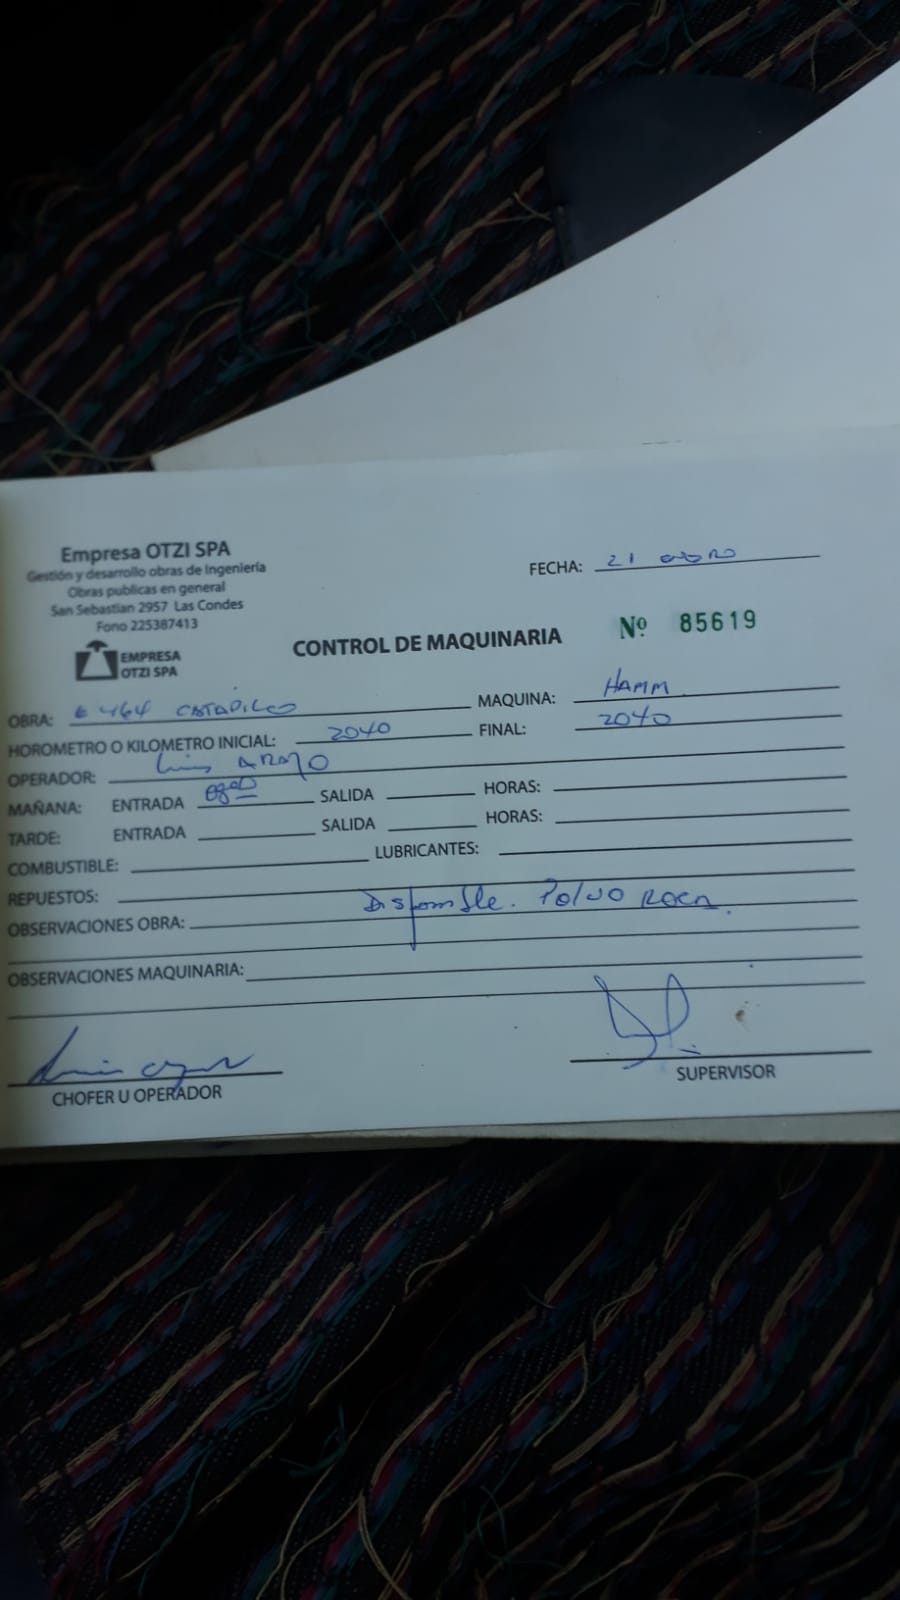 Empresa OTZI SPA
Gestión y desarrollo obras de Ingeniería
Obras publicas en general
San Sebastian 2957 Las Condes
Fono 225387413
EMPRESA
OTZI SPA
FECHA: 21 enero
CONTROL DE MAQUINARIA
Nº 85619
OBRA: E 464 CATAPILCO MAQUINA: HAMM
HOROMETRO O KILOMETRO INICIAL: 2040 FINAL: 2040
OPERADOR: Luis
MAÑANA: ENTRADA SALIDA HORAS:
TARDE: ENTRADA SALIDA HORAS:
COMBUSTIBLE: LUBRICANTES:
REPUESTOS:
OBSERVACIONES OBRA: Disponible. Polvo Roca.
OBSERVACIONES MAQUINARIA:
CHOFER U OPERADOR
SUPERVISOR